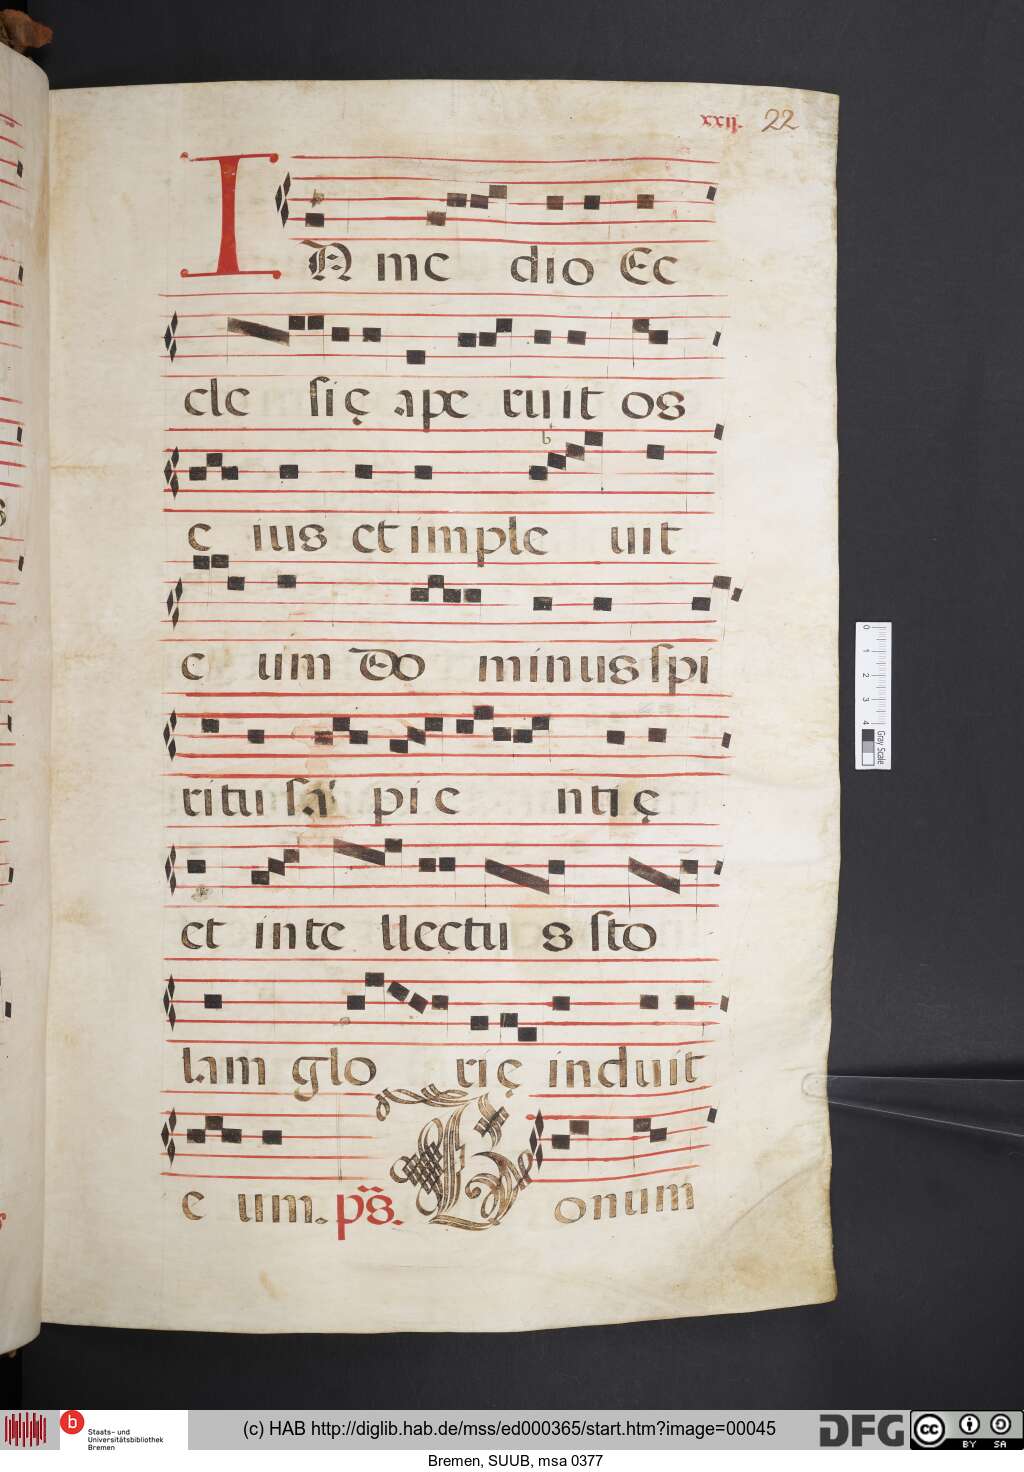 xxij. 22
IN me dio Ec
cle się ape ruit os
e ius et imple uit
e um Do minus spi
ritu sa pi e ntię
et inte llectu s sto
lam glo rię induit
e um. ps. Bonum
0 1 2 3 4 Gray Scale
b Staats- und Universitätsbibliothek Bremen
(c) HAB http://diglib.hab.de/mss/ed000365/start.htm?image=00045
DFG cc BY SA
Bremen, SUUB, msa 0377